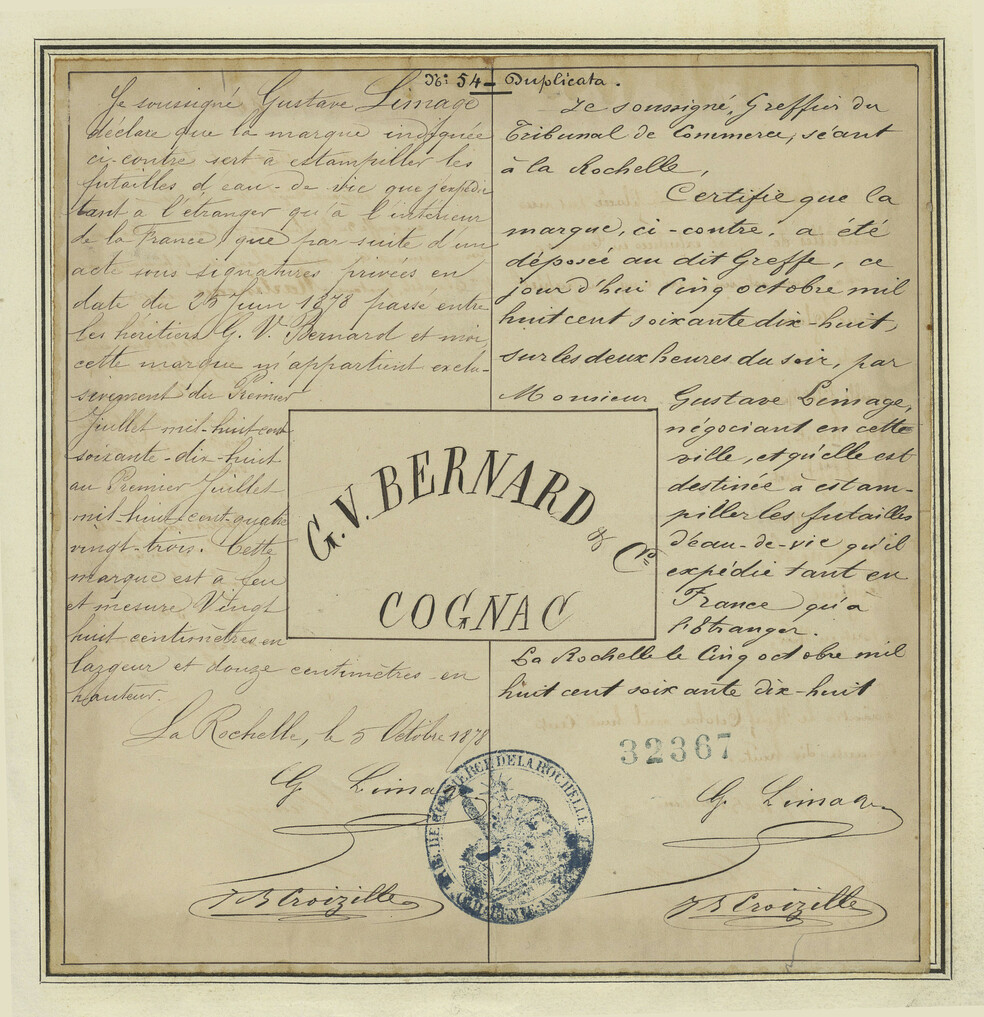 No. 54 – Duplicata.
Je soussigné Gustave Limage
déclare que la marque indiquée
ci-contre sert à estampiller les
futailles d'eau-de-vie que j'expédie
tant à l'étranger qu'à l'intérieur
de la France, que par suite d'un
acte sous signatures privées en
date du 25 Juin 1878 passé entre
les héritiers G. V. Bernard et moi,
cette marque m'appartient exclu-
sivement du Premier
Juillet mil-huit-cent
soixante-dix-huit
au Premier Juillet
mil-huit-cent-quatre
vingt-trois. Cette
marque est à feu
et mesure Vingt
huit centimètres en
largeur et douze centimètres en
hauteur.
La Rochelle, le 5 Octobre 1878
G. Limage
J B Croizille
G. V. BERNARD & Cie
COGNAC
Je soussigné, Greffier du
Tribunal de Commerce, séant
à la Rochelle,
Certifie que la
marque, ci-contre, a été
déposée au dit Greffe, ce
jour d'hui Cinq octobre mil
huit cent soixante dix-huit,
sur les deux heures du soir, par
Monsieur Gustave Limage,
négociant en cette
ville, et qu'elle est
destinée à estam-
piller les futailles
d'eau-de-vie qu'il
expédie tant en
France qu'à
l'Etranger.
La Rochelle le Cinq octobre mil
huit cent soixante dix-huit
32367
G. Limage
J B Croizille
TRIB. DE COMMERCE DE LA ROCHELLE